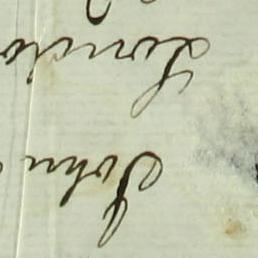 John
Londo